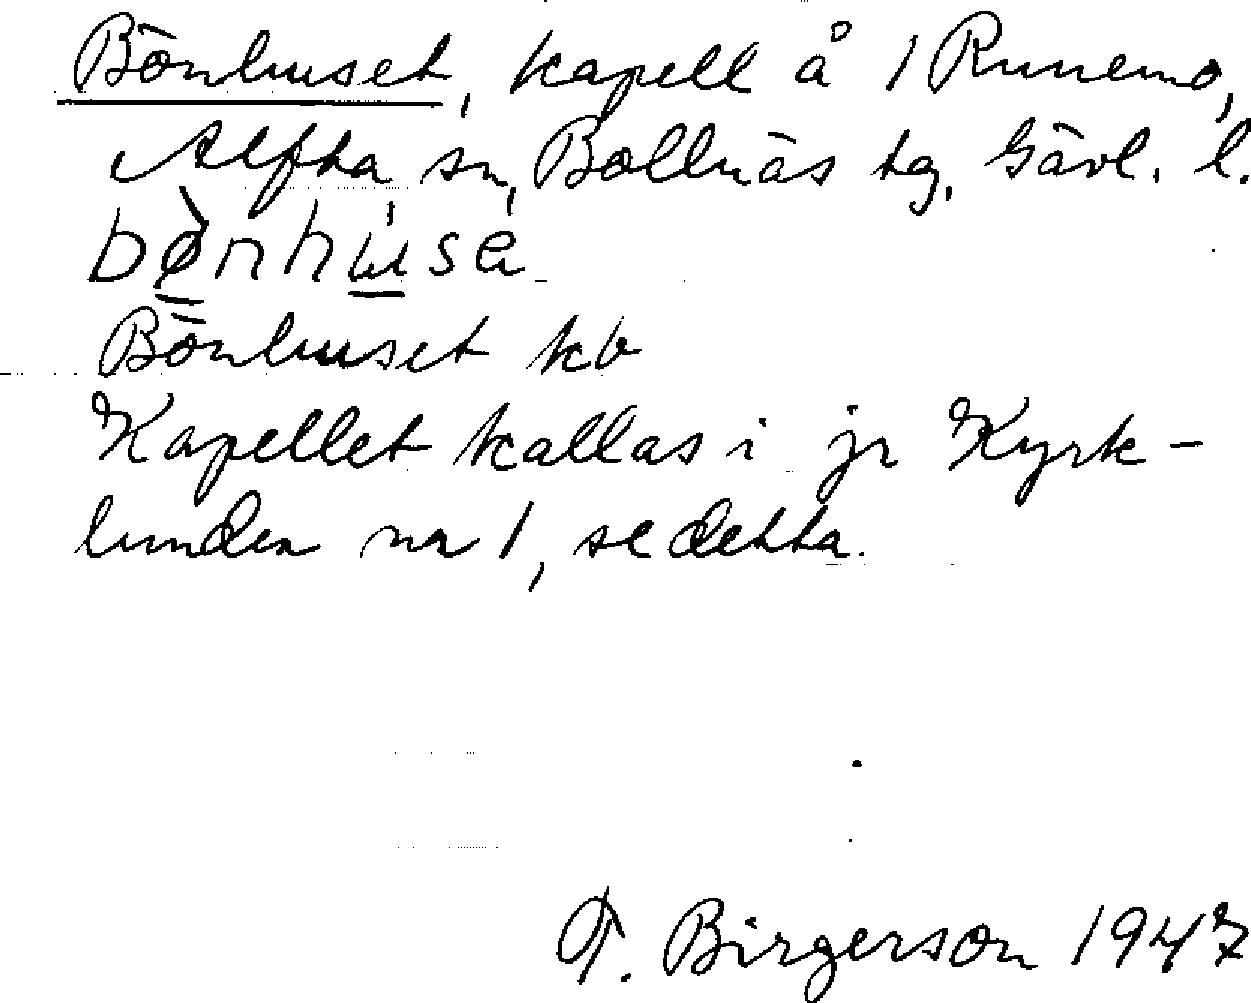 Bönhuset, kapell å 1 Runemo,
Alfta sn, Bollnäs tg. Gävl. l.
bø̀nhusé
Bönhuset kb
Kapellet kallas i jr Kyrk-
lunden nr 1, se detta.
T. Birgerson 1947